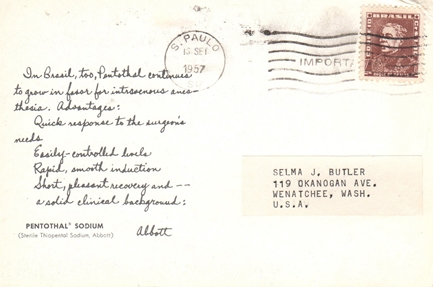 S. PAULO
SET
1957
BRASIL
IMPORTA
In Brasil, too, Pentothal continues
to grow in favor for intravenous anes-
thesia. Advantages:
Quick response to the surgeon's
needs
Easily-controlled levels
Rapid, smooth induction
Short, pleasant recovery and --
a solid clinical background:
PENTOTHAL® SODIUM
(Sterile Thiopental Sodium, Abbott)
Abbott
SELMA J. BUTLER
119 OKANOGAN AVE.
WENATCHEE, WASH.
U.S.A.